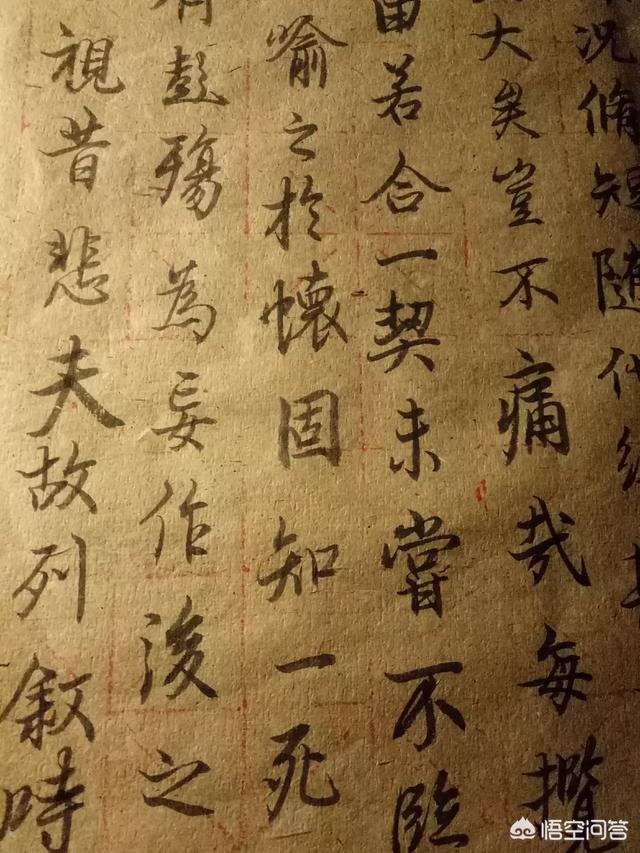 况脩短随化終
大矣豈不痛哉每攬
由若合一契未嘗不臨
喻之於懷固知一死
彭殤為妄作後之
視昔悲夫故列敘時
悟空问答